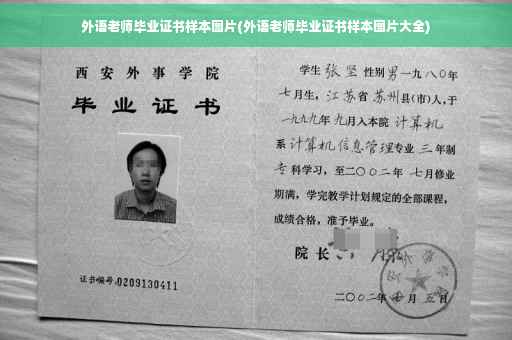 外语老师毕业证书样本图片(外语老师毕业证书样本图片大全)
西安外事学院
毕业证书
证书编号:0209130411
学生 张坚 性别 男 一九八〇年
七月生, 江苏省 苏州县(市)人,于
一九九九年 九月入本院 计算机
系 计算机信息管理 专业 三 年制
专科学习,至二〇〇二年 七月修业
期满,学完教学计划规定的全部课程,
成绩合格,准予毕业。
院长
二〇〇二年 月 五日